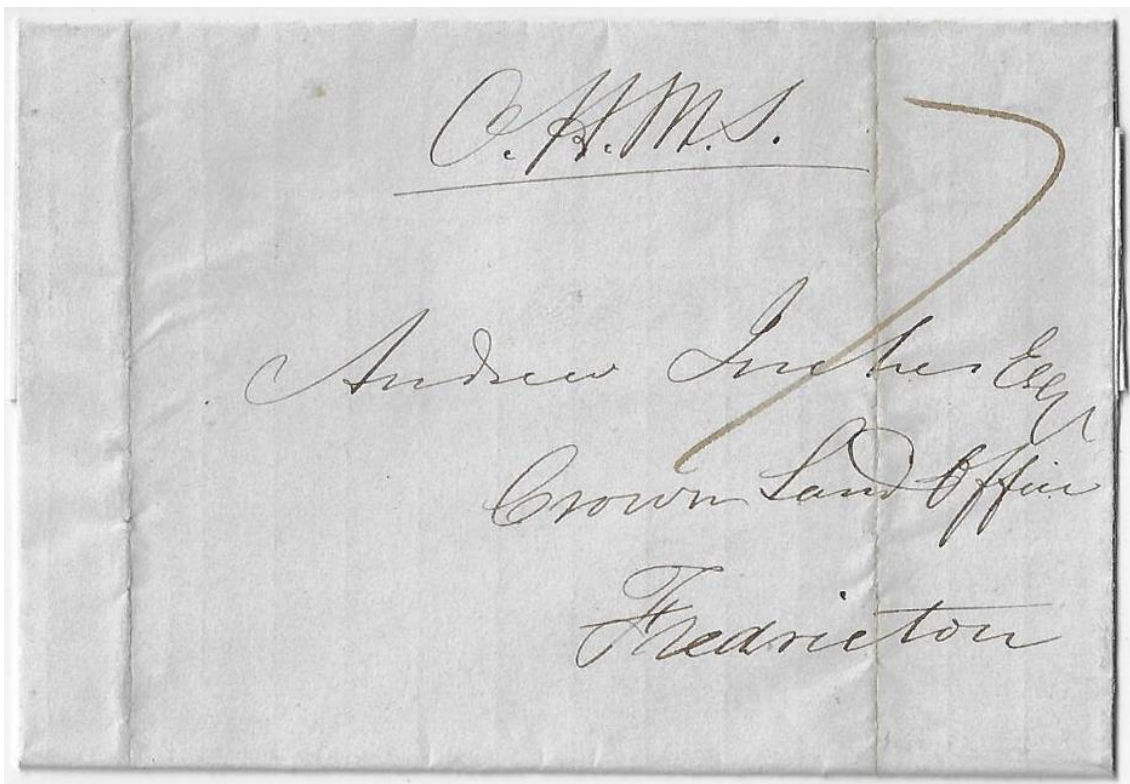 O.H.M.S.
7
Andrew Inches Esqr
Crown Land Office
Fredricton